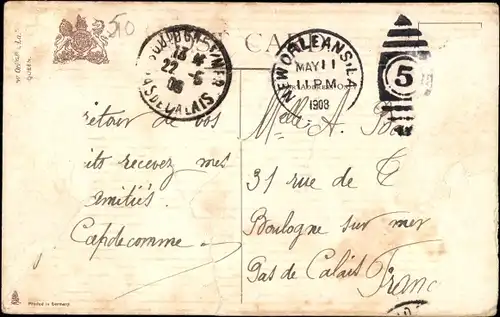 510
CA
BOULOGNE S/MER
13
22 - 5
08
PAS DE CALAIS
NEW ORLEANS, LA.
MAY 11
11 PM
1908
5
QUEEN.
retour de vos
its recevez mes
amitiés.
Capdecomme.
Melle A. Bo
31 rue de C
Boulogne sur mer
Pas de Calais
Franc
Printed in Germany.